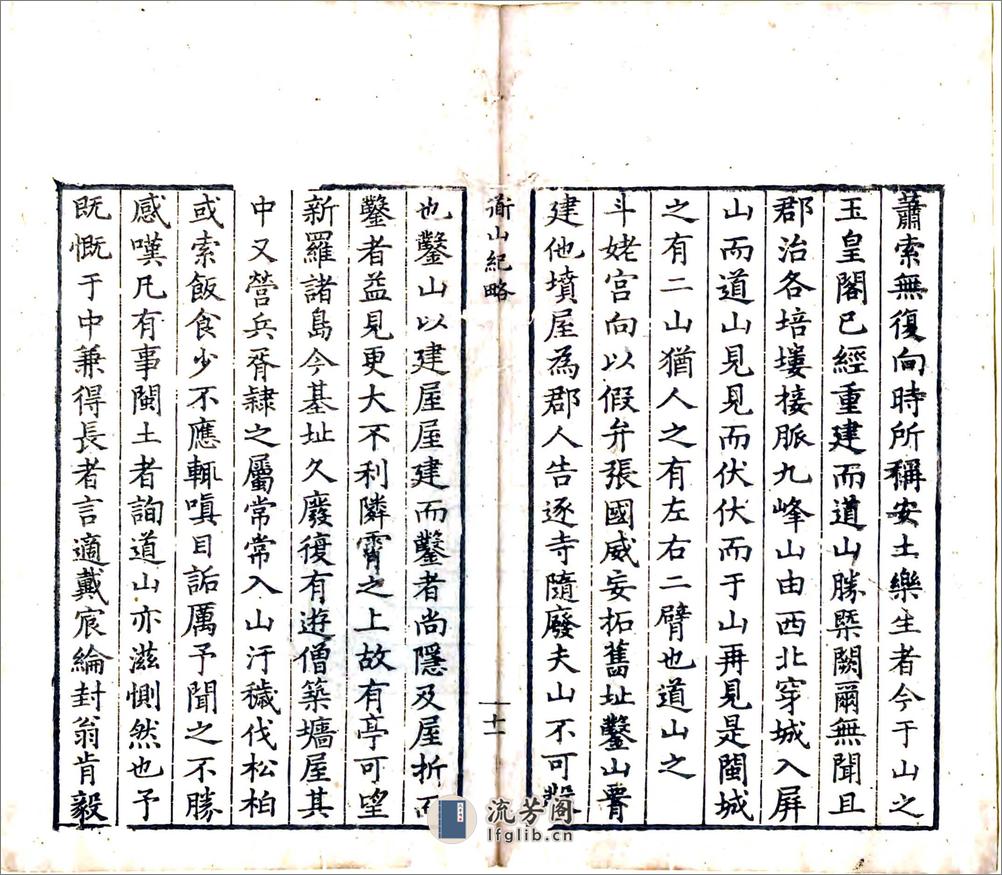 蕭索無復向時所稱安土樂生者今于山之
玉皇閣已經重建而道山勝槩闕爾無聞且
郡治各培塿接脈九峰山由西北穿城入屏
山而道山見見而伏伏而于山再見是閩城
之有二山猶人之有左右二臂也道山之
斗姥宫向以假弁張國威妄拓舊址鑿山
建他墳屋為郡人告逐寺隨廢夫山不可鑿
衜山紀略
十一
也鑿山以建屋屋建而鑿者尚隱及屋折而
鑿者益見更大不利隣霄之上故有亭可望
新羅諸島今基址久廢復有遊僧築墻屋其
中又營兵胥隸之屬常常入山汙穢伐松柏
或索飯食少不應輒嗔目詬厲予聞之不勝
感嘆凡有事閩土者詢道山亦滋惻然也予
既慨于中兼得長者言適戴宸綸封翁肯毅
流芳阁
lfglib.cn